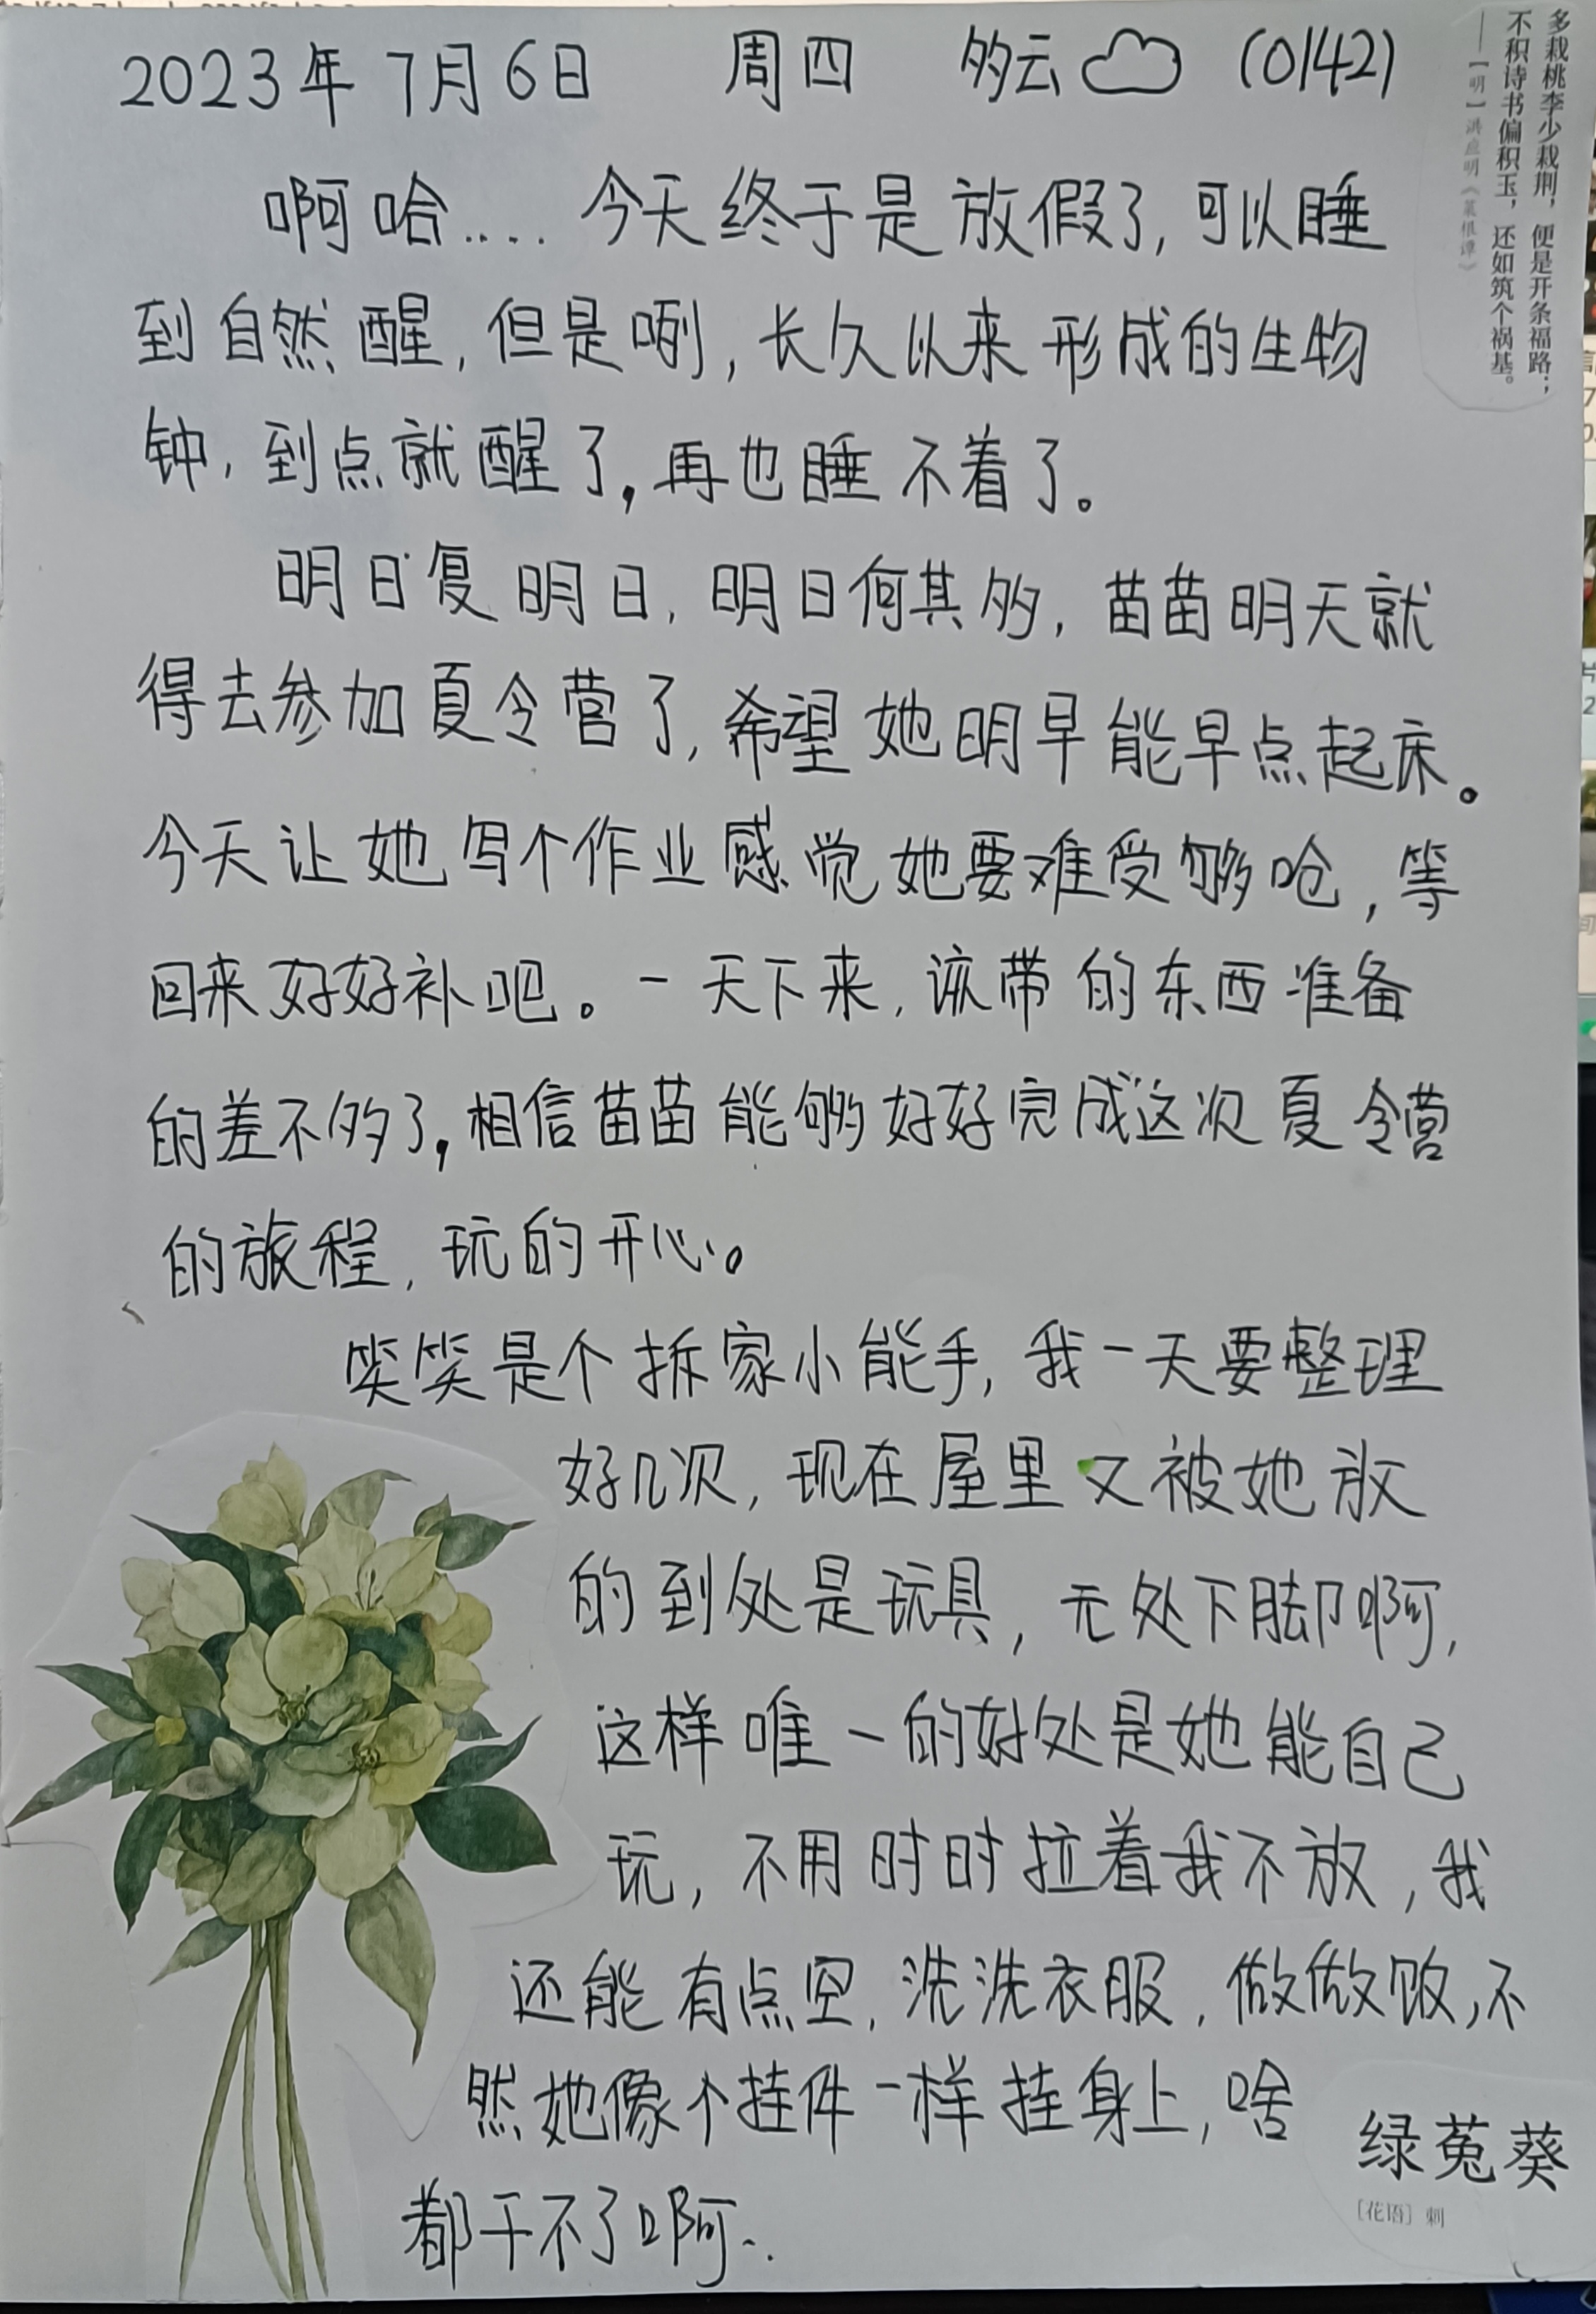 2023年7月6日 周四 多云 (0142)
多栽桃李少栽荆，便是开条福路；
不积诗书偏积玉，还如筑个祸基。
——［明］洪应明《菜根谭》
啊哈.... 今天终于是放假了，可以睡
到自然醒，但是咧，长久以来形成的生物
钟，到点就醒了，再也睡不着了。
明日复明日，明日何其多，苗苗明天就
得去参加夏令营了，希望她明早能早点起床。
今天让她写个作业感觉她要难受够呛，等
回来好好补吧。一天下来，该带的东西准备
的差不多了，相信苗苗能够好好完成这次夏令营
的旅程，玩的开心。
笑笑是个拆家小能手，我一天要整理
好几次，现在屋里又被她放
的到处是玩具，无处下脚啊，
这样唯一的好处是她能自己
玩，不用时时拉着我不放，我
还能有点空，洗洗衣服，做做饭，不
然她像个挂件一样挂身上，啥
都干不了啊...
绿菟葵
［花语］刺